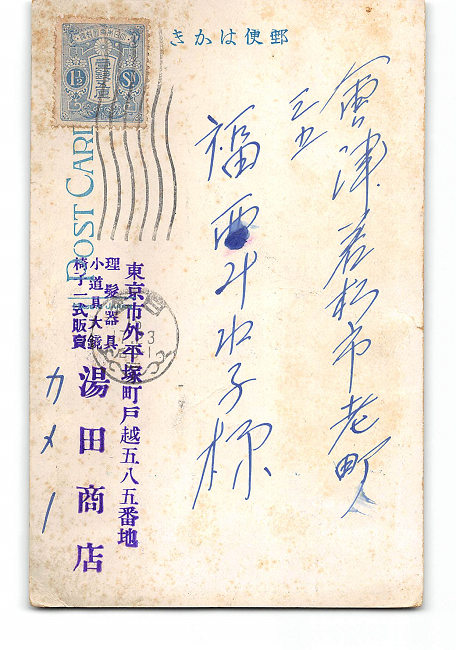 郵便はかき
會津若松市老町
三五
福西斗水子様
東京市外平塚町戸越五八五番地
理髪器具
小道具大鏡
椅子一式販賣
湯田商店
カメー
POST CARD
1½ Sn